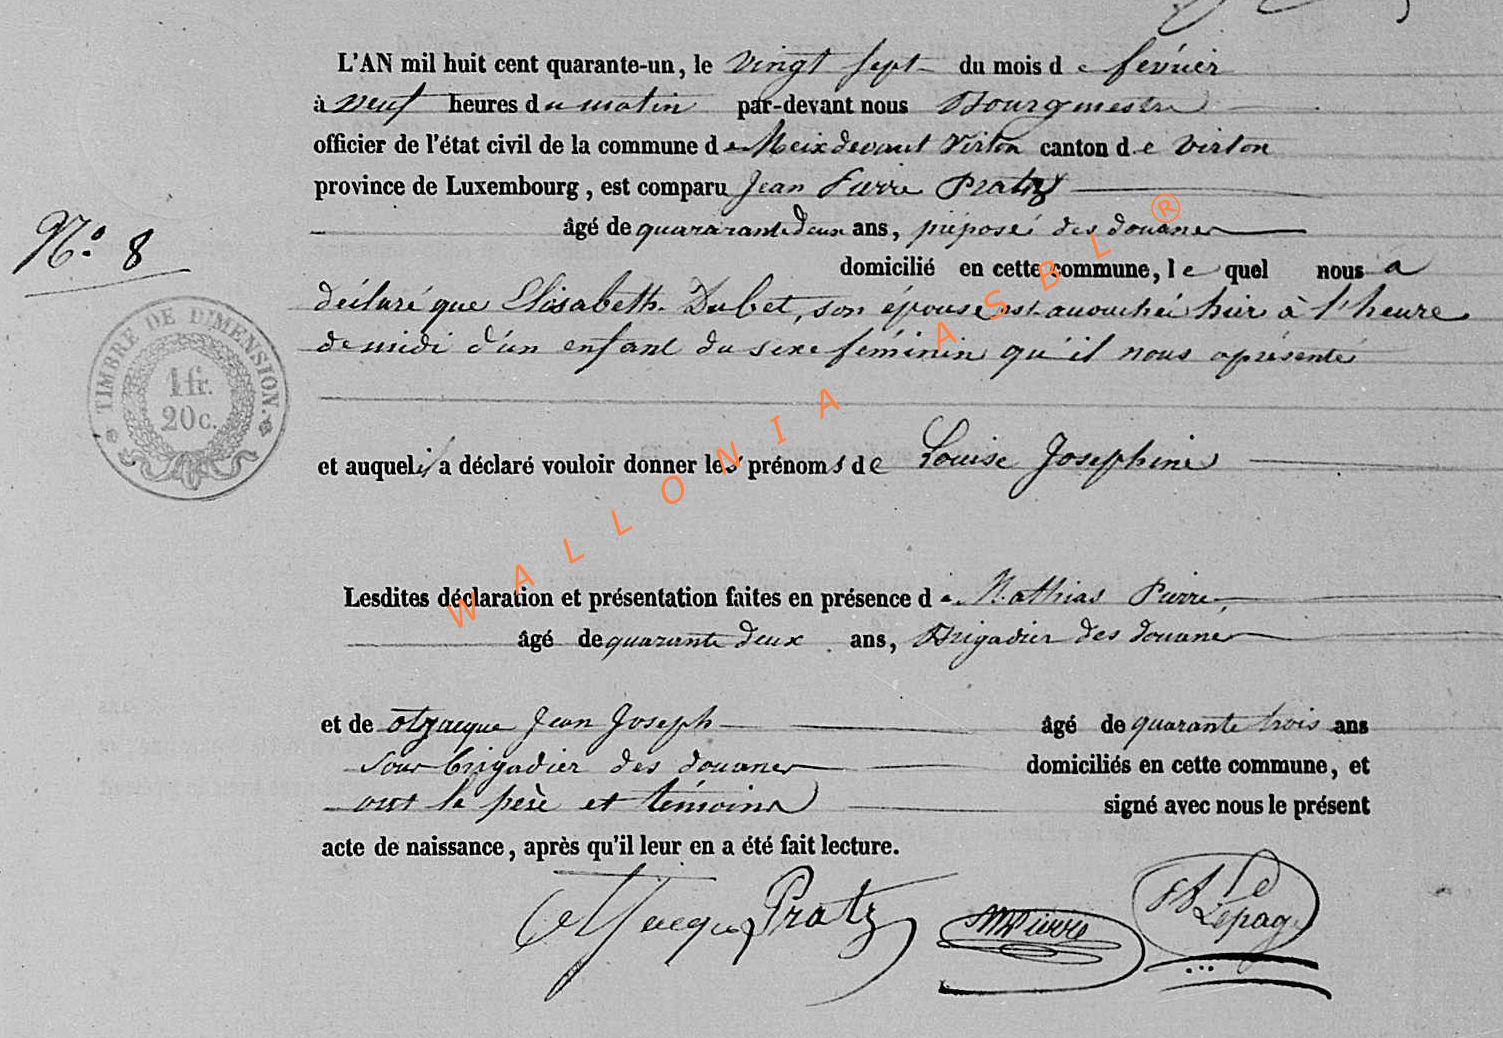 L'AN mil huit cent quarante-un, le vingt sept du mois de février
à neuf heures du matin par-devant nous Bourgmestre
officier de l'état civil de la commune de Meix devant Virton canton de Virton
province de Luxembourg, est comparu Jean Pierre Pratz
âgé de quararante deux ans, préposé des douanes
N.º 8
domicilié en cette commune, le quel nous a
déclaré que Elisabeth Dubet, son épouse est accouchée hier à l'heure
de midi d'un enfant du sexe féminin qu'il nous a présenté
TIMBRE DE DIMENSION.
1 fr.
20 c.
et auquel il a déclaré vouloir donner les prénoms de Louise Josephine
Lesdites déclaration et présentation faites en présence de Mathias Pierre,
âgé de quarante deux ans, Brigadier des douanes
et de Otjacque Jean Joseph âgé de quarante trois ans
sous brigadier des douanes domiciliés en cette commune, et
ont le père et témoins signé avec nous le présent
acte de naissance, après qu'il leur en a été fait lecture.
Otjacques Pratz MPierre Lepage
WALLONIA ASBL ®